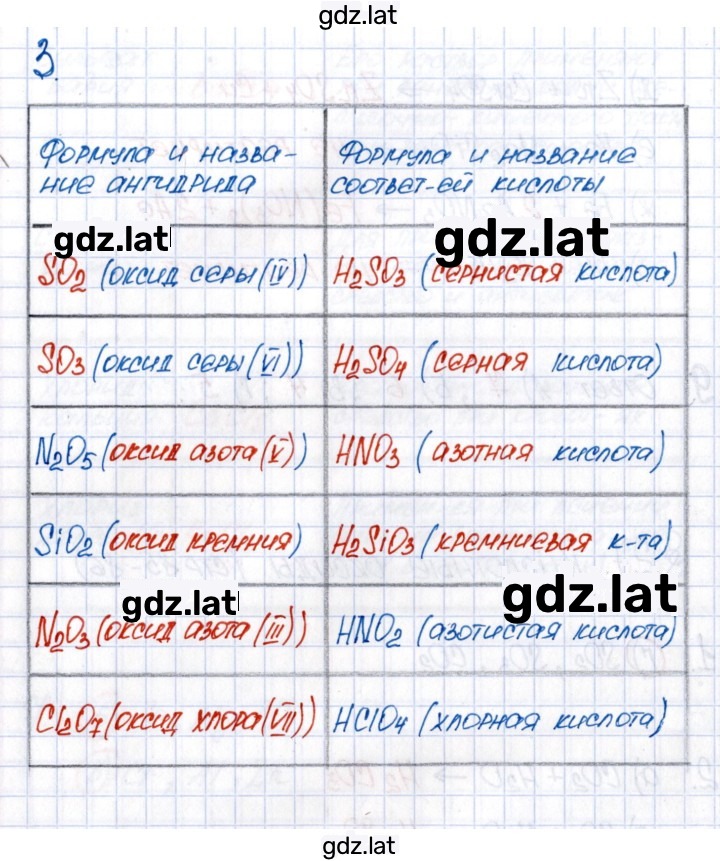 gdz.lat
3.
Формула и назва-
ние ангидрида
Формула и название
соответ-ей кислоты
gdz.lat
gdz.lat
SO2 (оксид серы (IV))
H2SO3 (сернистая кислота)
SO3 (оксид серы (VI))
H2SO4 (серная кислота)
N2O5 (оксид азота (V))
HNO3 (азотная кислота)
SiO2 (оксид кремния)
H2SiO3 (кремниевая к-та)
gdz.lat
gdz.lat
N2O3 (оксид азота (III))
HNO2 (азотистая кислота)
Cl2O7 (оксид хлора (VII))
HClO4 (хлорная кислота)
gdz.lat